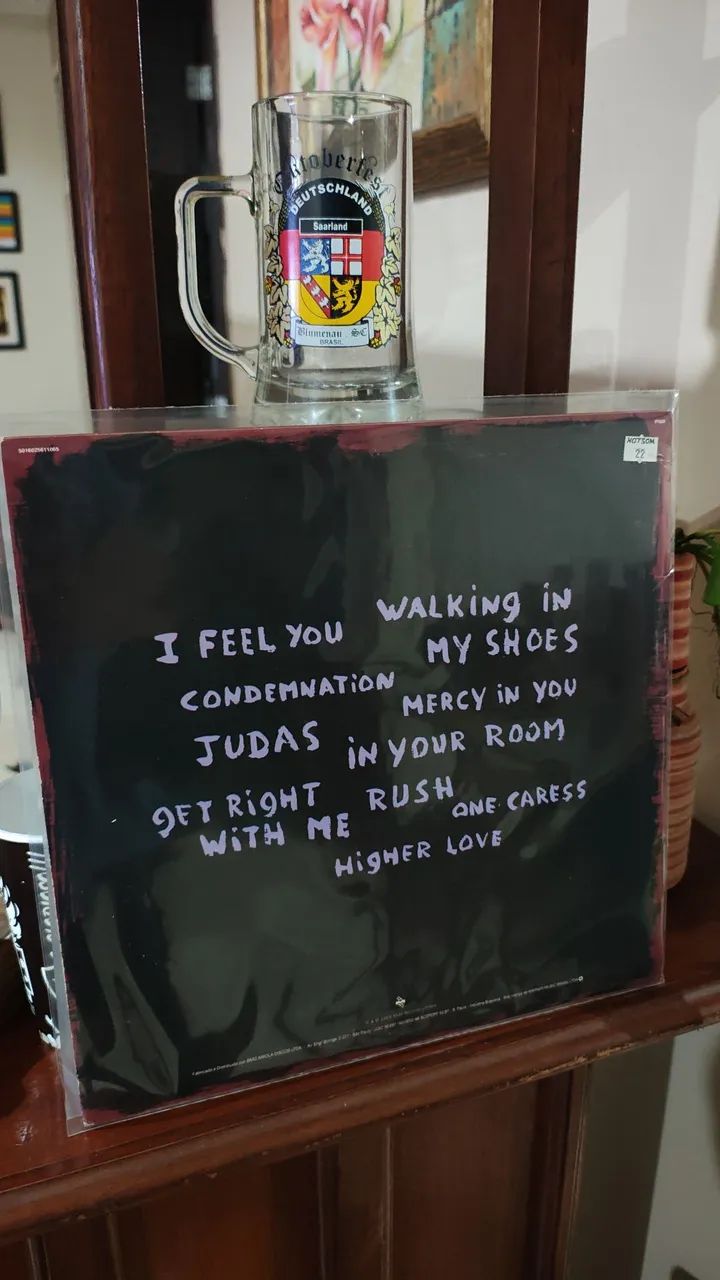 Oktoberfest
DEUTSCHLAND
Saarland
Blumenau SC
BRASIL
5016025611065
HOTSOM
22
I FEEL YOU
WALKiNg iN
MY SHOES
CONDEMNATiON
MERCY iN YOU
JUDAS
iN YOUR ROOM
gET RigHT
WiTH ME
RUSH
ONE CARESS
HigHER LOVE